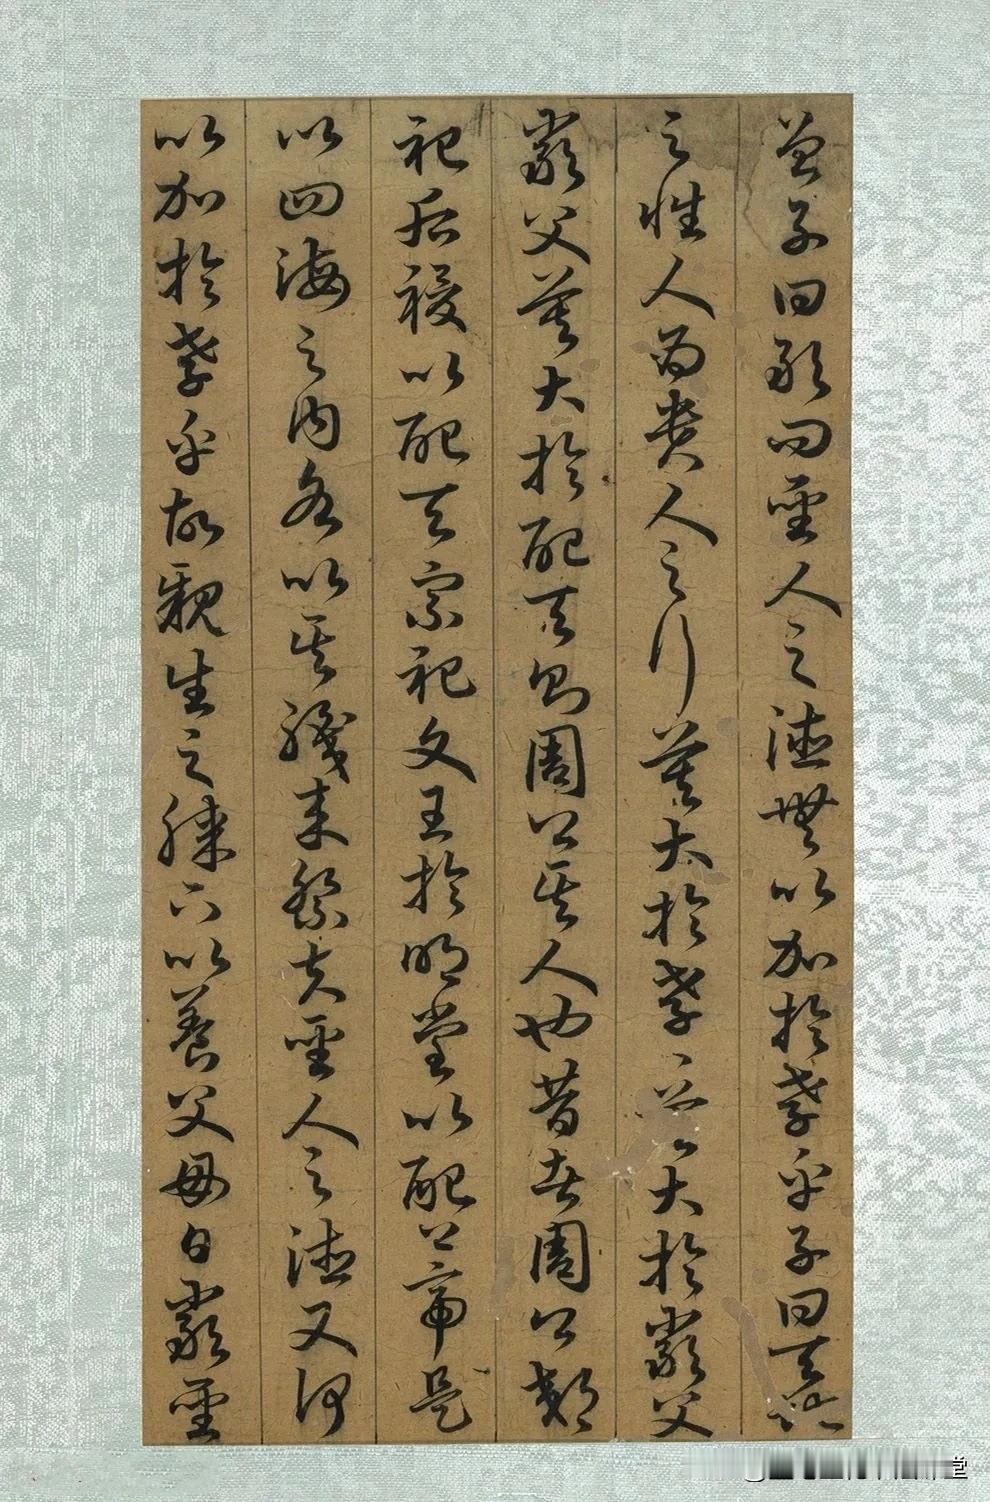 曾子曰敢問聖人之德無以加於孝乎子曰天地
之性人為貴人之行莫大於孝〻大於嚴父
嚴父莫大於配天則周公其人也昔者周公郊
祀后稷以配天宗祀文王於明堂以配上帝是
以四海之内各以其職来祭夫聖人之德又何
以加於孝乎故親生之膝下以養父母日嚴聖
堂